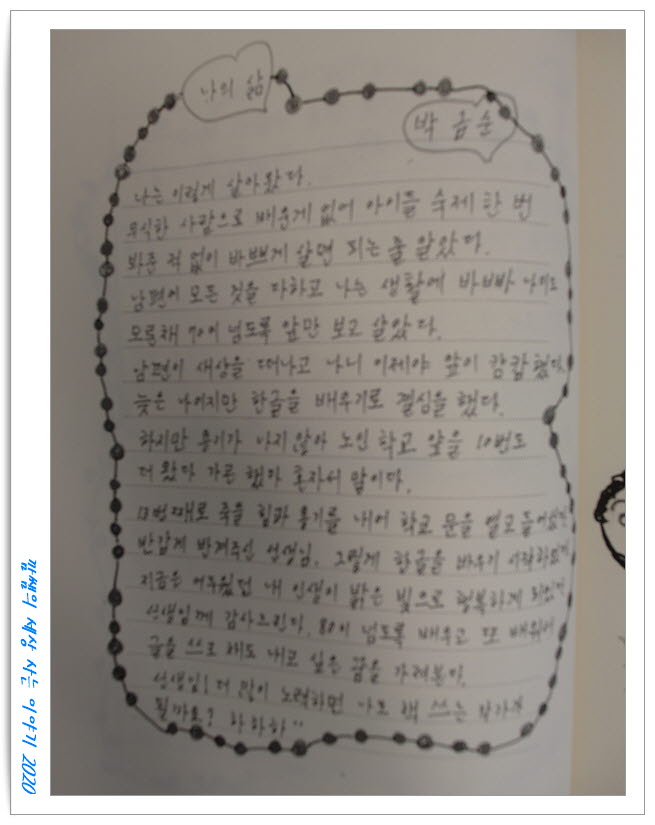 나의 삶
박 금 순
나는 이렇게 살아왔다.
무식한 사람으로 배운게 없어 아이들 숙제 한 번
봐준 적 없이 바쁘게 살면 되는 줄 알았다.
남편이 모든 것을 다하고 나는 생활에 바빠 나이도
모른채 70이 넘도록 앞만 보고 살았다.
남편이 세상을 떠나고 나니 이제야 앞이 캄캄했다.
늦은 나이지만 한글을 배우기로 결심을 했다.
하지만 용기가 나지 않아 노인 학교 앞을 10번도
더 왔다 가른 했다 혼자서 말이다.
죽을 힘과 용기를 내어 학교 문을 열고 들어섰다
반갑게 반겨주신 선생님. 그렇게 한글을 배우기 시작하였다
지금은 어두웠던 내 인생이 밝은 빛으로 행복하게 되었다
선생님께 감사드린다. 80이 넘도록 배우고 또 배워서
글을 쓰고 책도 내고 싶은 꿈을 가져본다.
선생님! 더 많이 노력하면 나도 책 쓰는 작가가
될까요? 하하하
2020